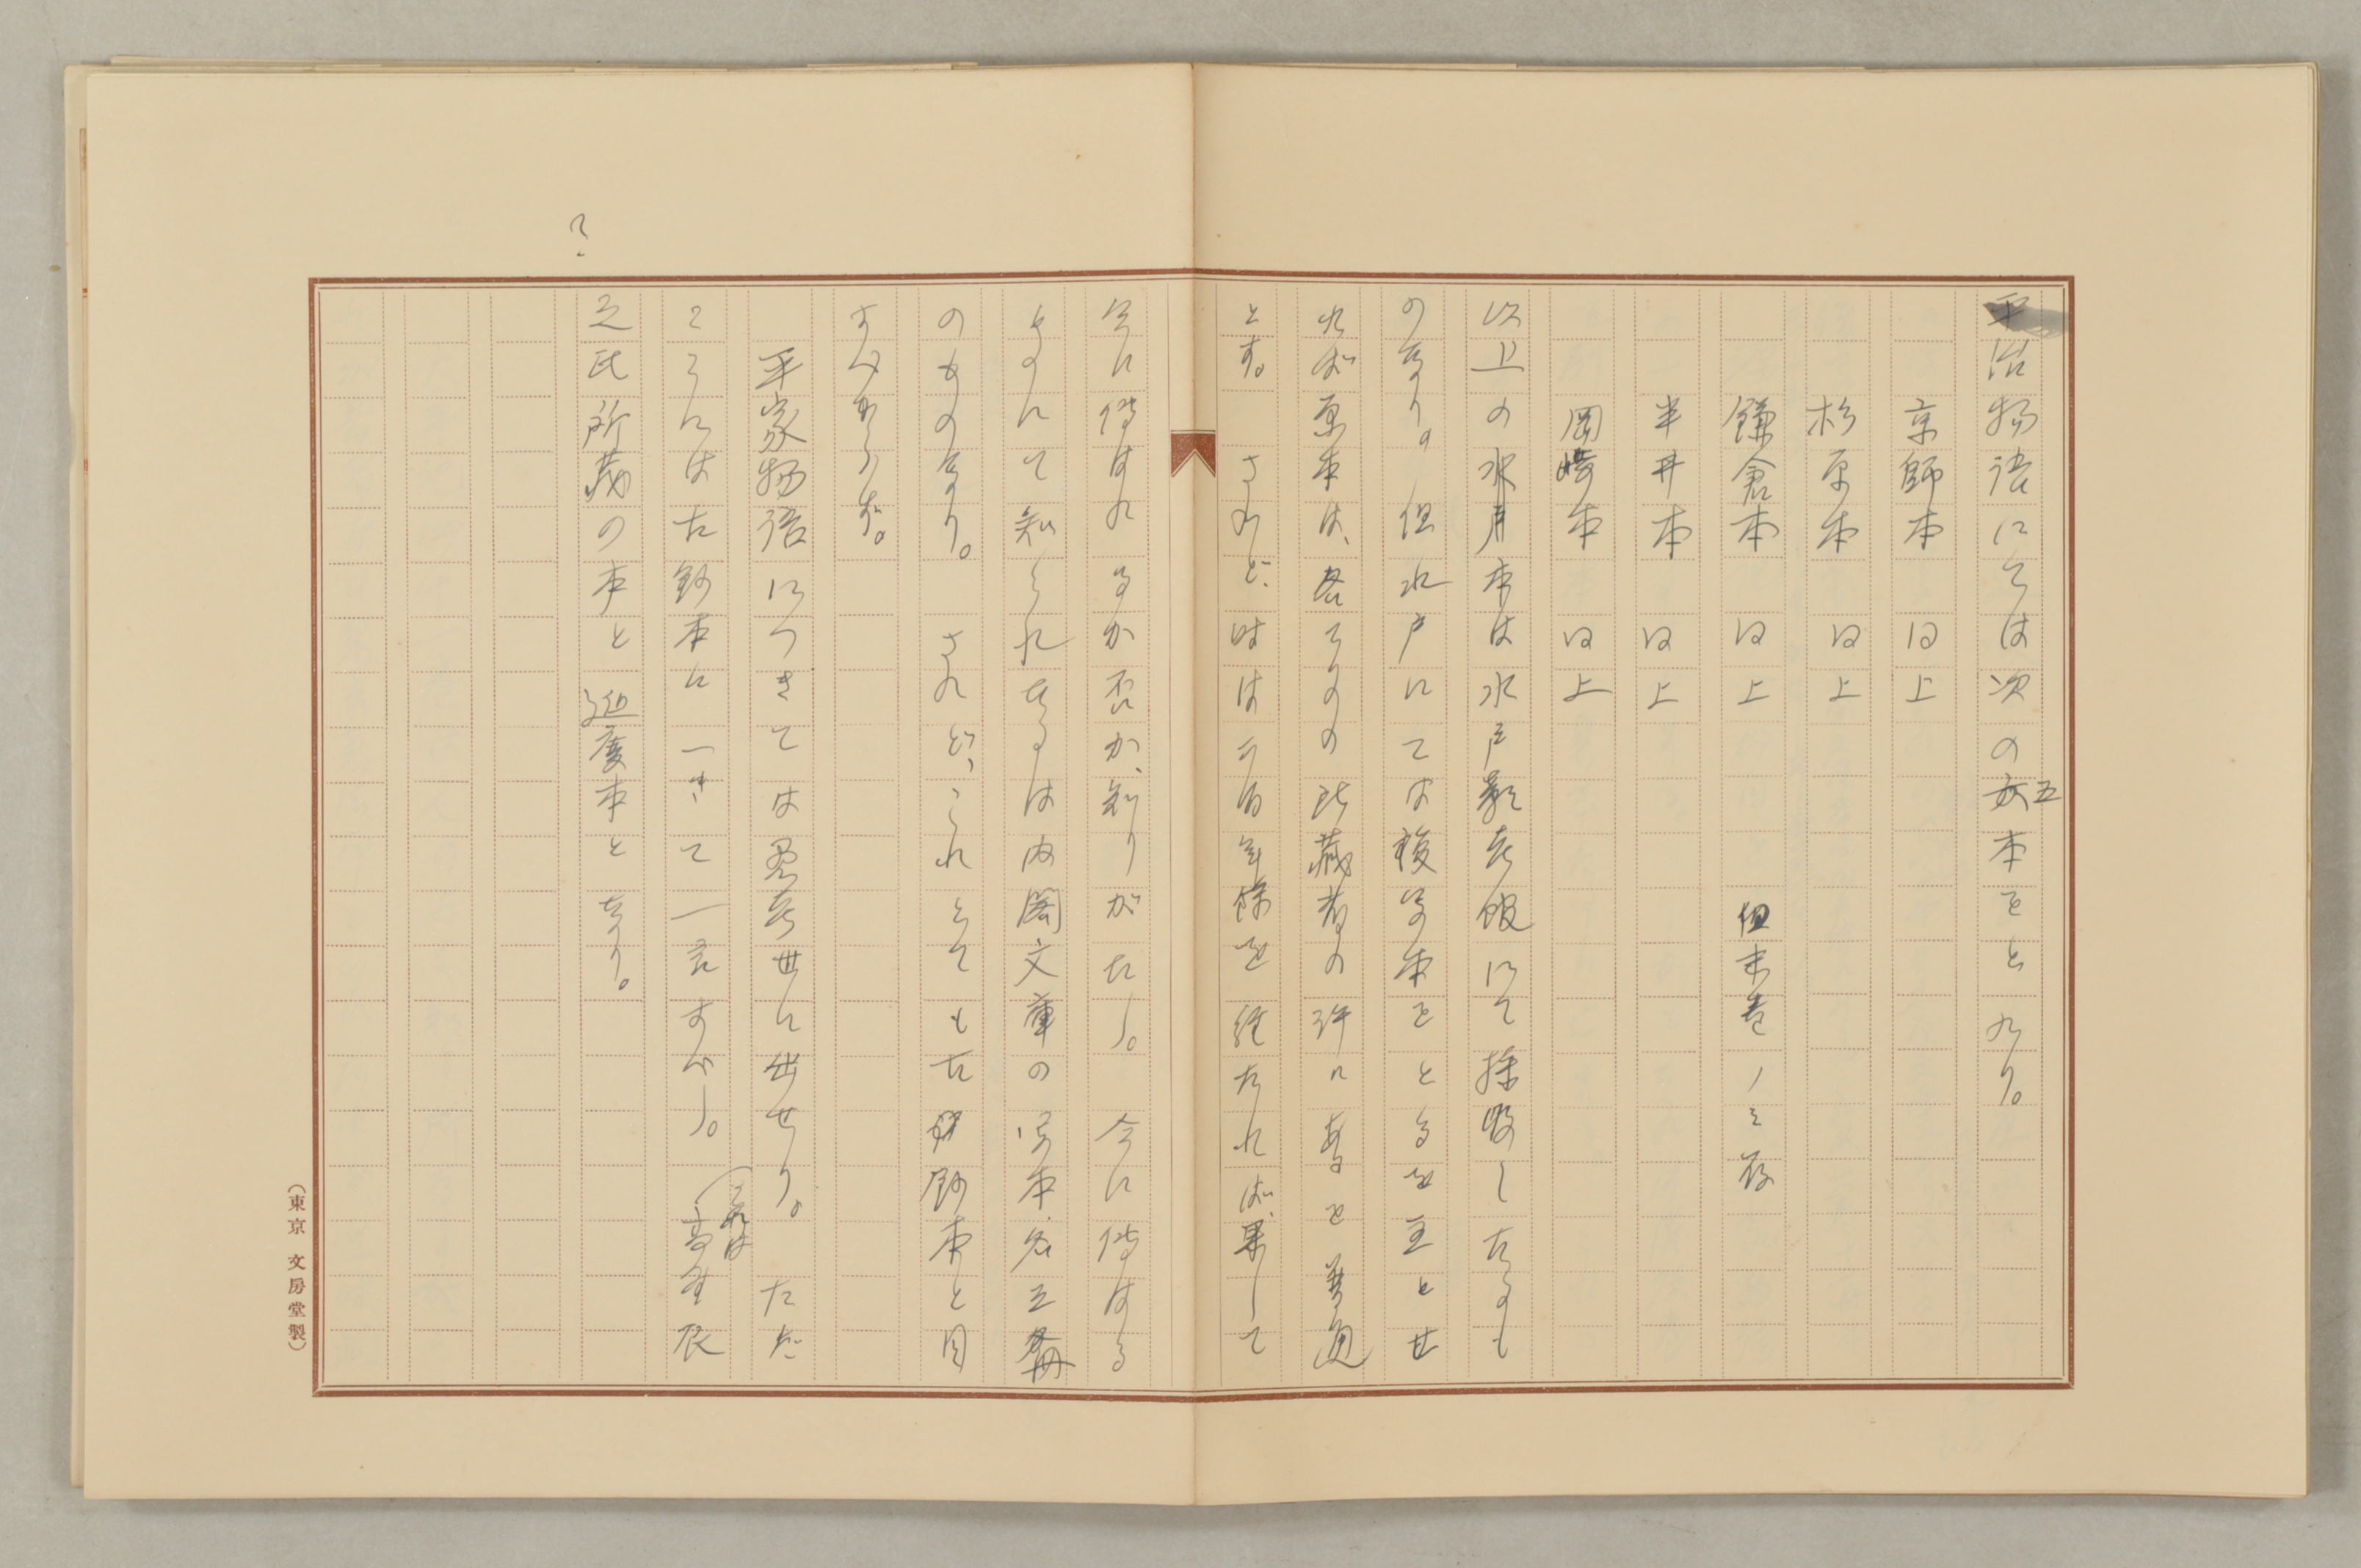 平治物語にては次の五本をとれり。
京師本 同上
杉原本 同上
鎌倉本 同上 但末巻ノミ存
半井本 同上
岡崎本 同上
以上の水戸本は水戸彰考館にて採収したるも
のなり。但水戸にては複写本をとるを主とせ
れば原本は、各そのの所蔵者の許にあるを普通
とす。されど、時は二百年餘を経たれば、果して
今に傳はれるか否か、知りがたし。今に傳はる
ものにて知られたるは内閣文庫の写本
のものなり。されど、これとても古鈔本と目
すべからず。
平家物語につきては愚考世に出せり。ただ
ここには古鈔本につきて一言すべし。
それは高野辰
之氏所蔵の本と延慶本となり。
?
(東京 文房堂製)